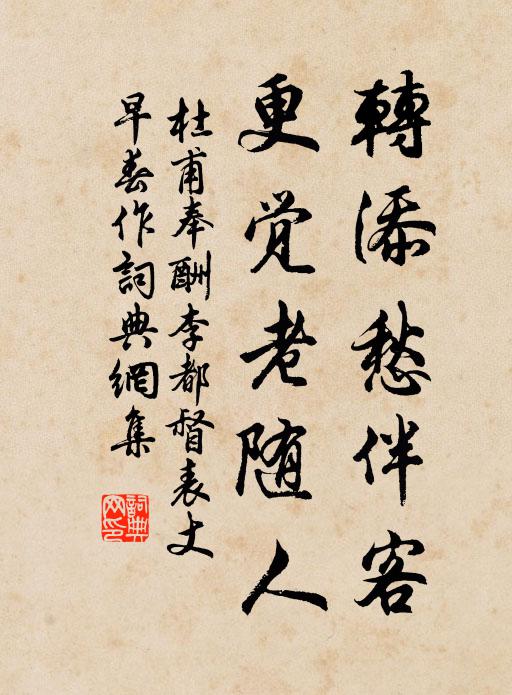 轉添愁伴客
更觉老随人
杜甫奉酬李都督表丈
早春作詞典網集
詞典
网印